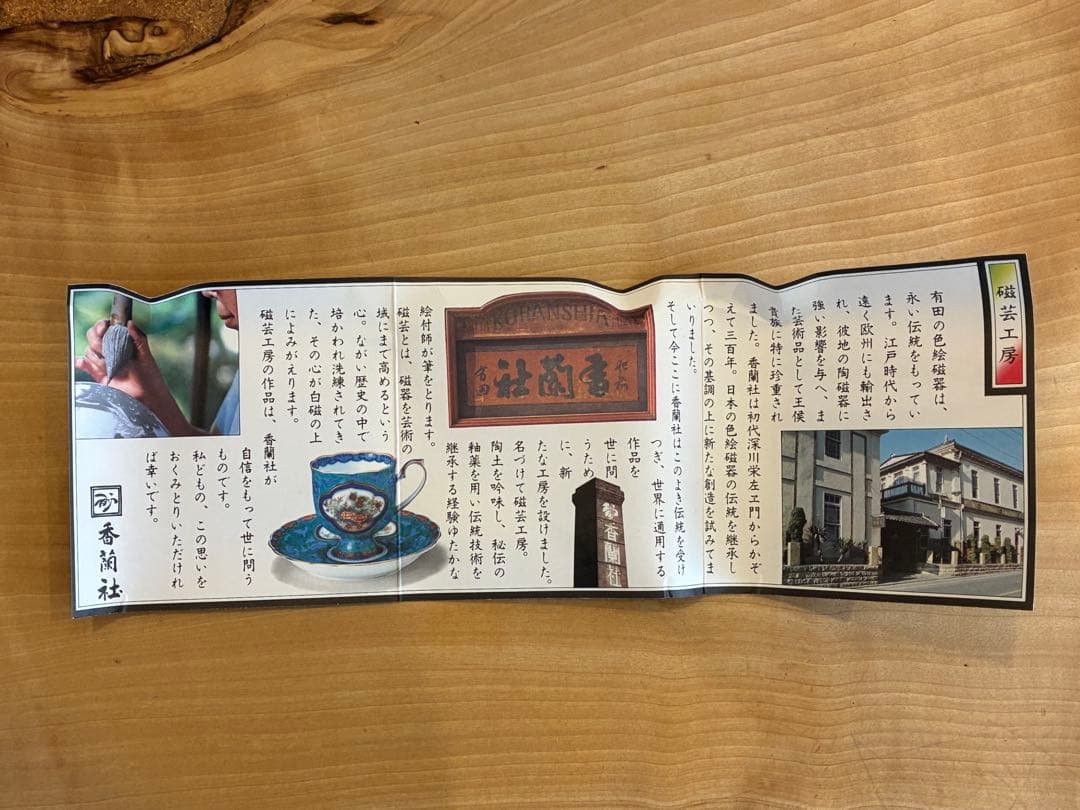 磁芸工房
有田の色絵磁器は、
永い伝統をもってい
ます。江戸時代から
遠く欧州にも輸出さ
れ、彼地の陶磁器に
強い影響を与へ、ま
た芸術品として王侯
貴族に特に珍重され
ました。香蘭社は初代深川栄左ヱ門からかぞ
えて三百年。日本の色絵磁器の伝統を継承し
つつ、その基調の上に新たな創造を試みてま
いりました。
そして今ここに香蘭社はこのよき伝統を受け
つぎ、世界に通用する
作品を
世に問
うため
に、新
たな工房を設けました。
名づけて磁芸工房。
陶土を吟味し、秘伝の
釉薬を用い伝統技術を
継承する経験ゆたかな
絵付師が筆をとります。
磁芸とは、磁器を芸術の
域にまで高めるという
心。ながい歴史の中で
培かわれ洗練されてき
た、その心が白磁の上
によみがえります。
磁芸工房の作品は、香蘭社が
自信をもって世に問う
ものです。
私どもの、この思いを
おくみとりいただけれ
ば幸いです。
香蘭社
KORANSHA
香蘭社
香蘭社